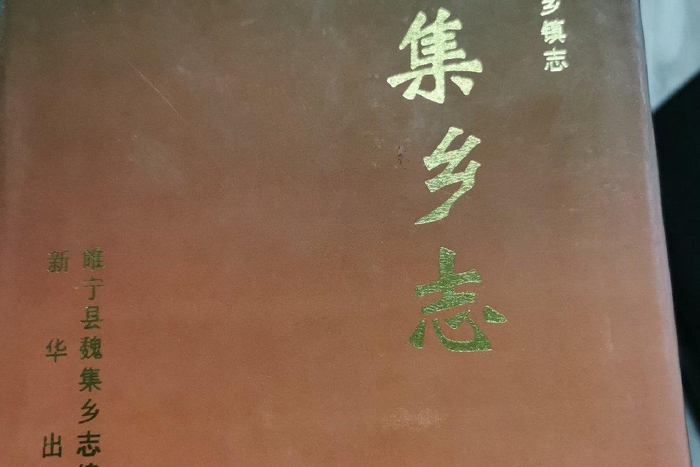 乡镇志
集乡志
睢宁县魏集乡志编
新华出